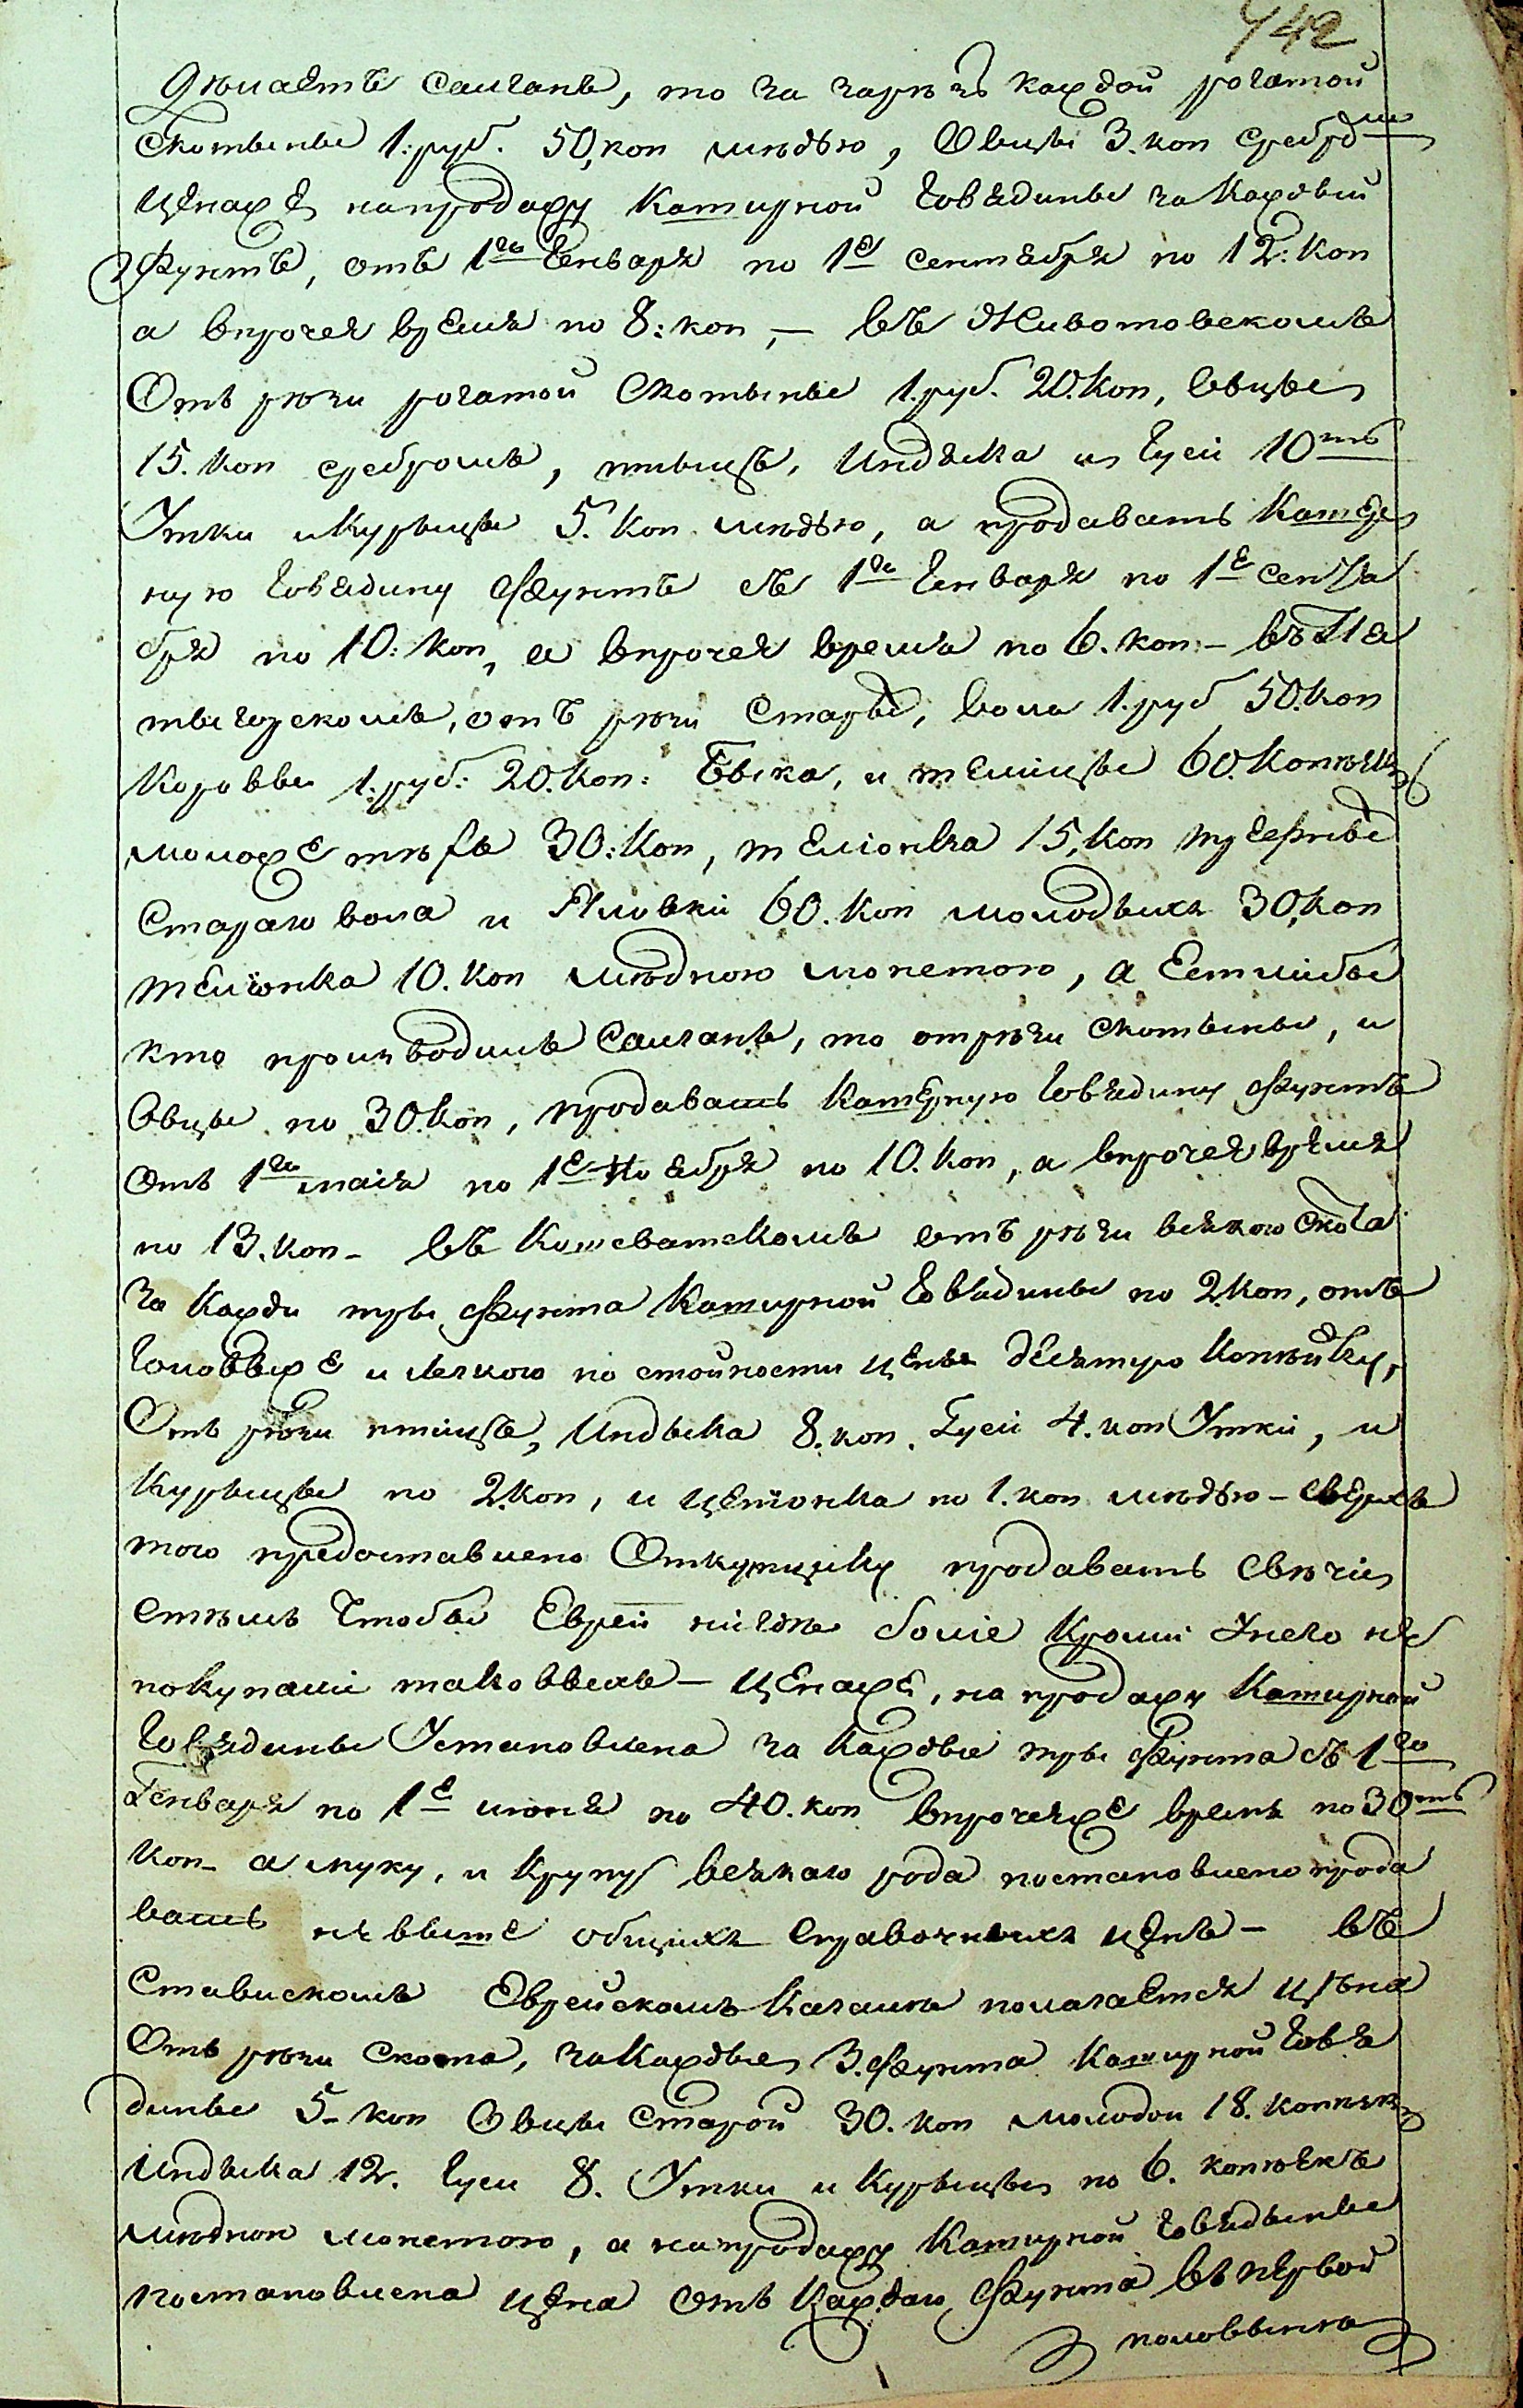 442
дѣлаетъ салганъ, то за зарѣзъ каждой рогатой
скотыны 1: руб. 50, коп мѣдью, Овцы 3. коп сребро㆐мъ
цена же на продажу катирной говядины за каждый
Фунтъ, отъ 1го Генваря по 1е сентября по 12: коп
а впрочея время по 8: коп, — въ Животовскомъ
Отъ рѣзи рогатой скотыны 1. руб. 20. коп, овцы
15. коп сребромъ, птыцъ, Индыка и Гуси 10ть
Утки и Курыцы 5. коп мѣдью, а продавать катер
ную говядину Фунтъ съ 1го Генваря по 1е сентя
бря по 10: коп, а впрочея время по 6. коп: — въ Пя
тыгорскомъ, отъ рѣзи старые, вола 1. руб 50. коп
коровы 1: руб: 20. коп: Быка, и телицы 60. копѣикъ
моложе тѣхъ 30: коп, теліонка 15, коп трефные
старого вола и Яловки 60. коп молодыхъ 30, коп
теліонка 10. коп мѣдною монетою, а Естлибы
кто производилъ салганъ, то отрѣзи скотыны, и
Овцы по 30. коп, продавать катерную говядину Фунтъ
отъ 1го маія по 1е Ноября по 10. коп, а впрочея время
по 13. коп — въ Кошеватскомъ отъ рѣзи всякого скота
за кажди тры Фунта катирной говядины по 2. коп, отъ
головы же и легкого по стоїности цены десятую копѣйку,
Отъ рѣзи птицъ, Индыка 8. коп. Гуси 4. коп Утки, и
курыцы по 2. коп, и цепіонка по 1. коп мѣдью — сверхъ
того предоставлено Откупщику продавать свѣчи
стѣмъ чтобы Еврей нигдѣ боліе кроми Унего не
покупали таковыхъ — цена же, на продажу катирной
говядины Установлена за каждые тры Фунта съ 1го
Генваря по 1е июня по 40. коп впрочея же время по 30ть
коп — а муку, и крупу всякого рода постановлено прода
вать не выше общихъ справочныхъ ценъ — въ
Ставискомъ Еврейскомъ Кагалѣ полагается цѣна
Отъ рѣзи скота, за каждые 3. Фунта катирной говя
дины 5 — коп Овцы старой 30. коп молодой 18. копѣикъ
Индыка 12. Гуси 8. Утки и Курыцы по 6. копѣекъ
мѣдною монетою, а на продажу катирной говядыны
постановлена цена отъ каждаго Фунта въ первой
половынѣ